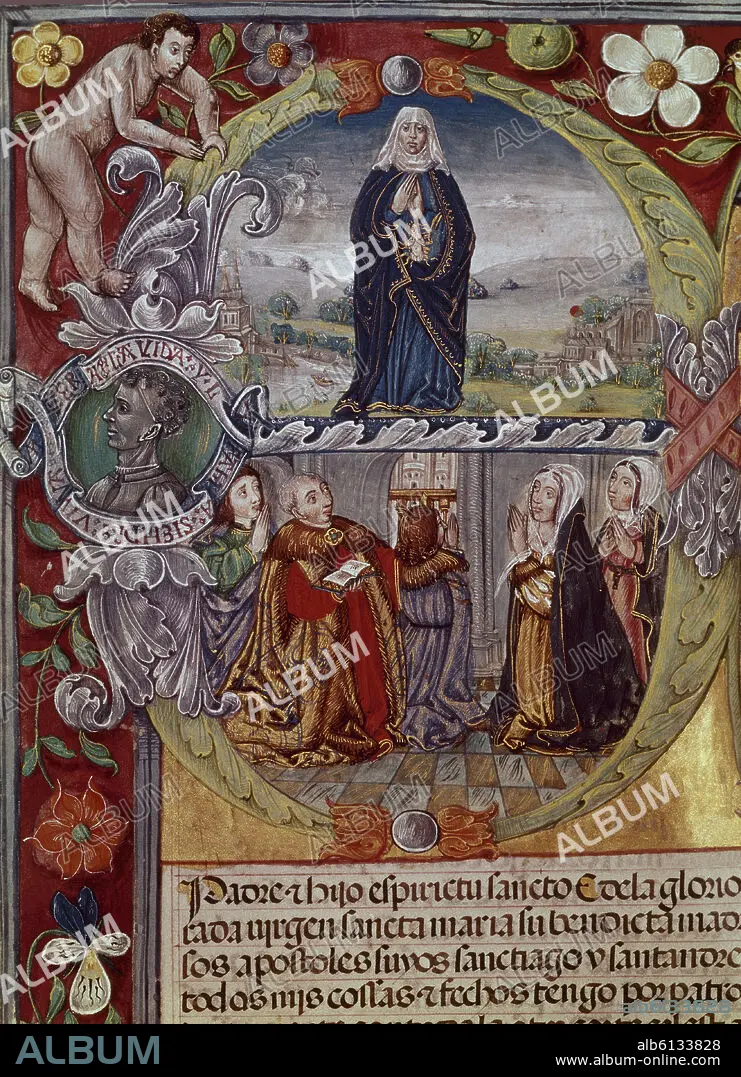 LA VIDA · Y
Padre ⁊ hijo espirictu sancto E dela glorio
cada virgen sancta maria su bendicta mad
sos apostoles suyos sanctiago y santandre
todos mjs cossas ⁊ fechos tengo por patro
ALBUM
alb6133828
www.album-online.com